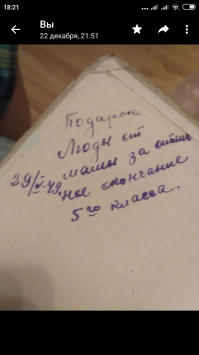 18:21
Вы
22 декабря, 21:51
Подарок
Люды от
мамы за отлич
29/V-49. ное окончание
5го класса.